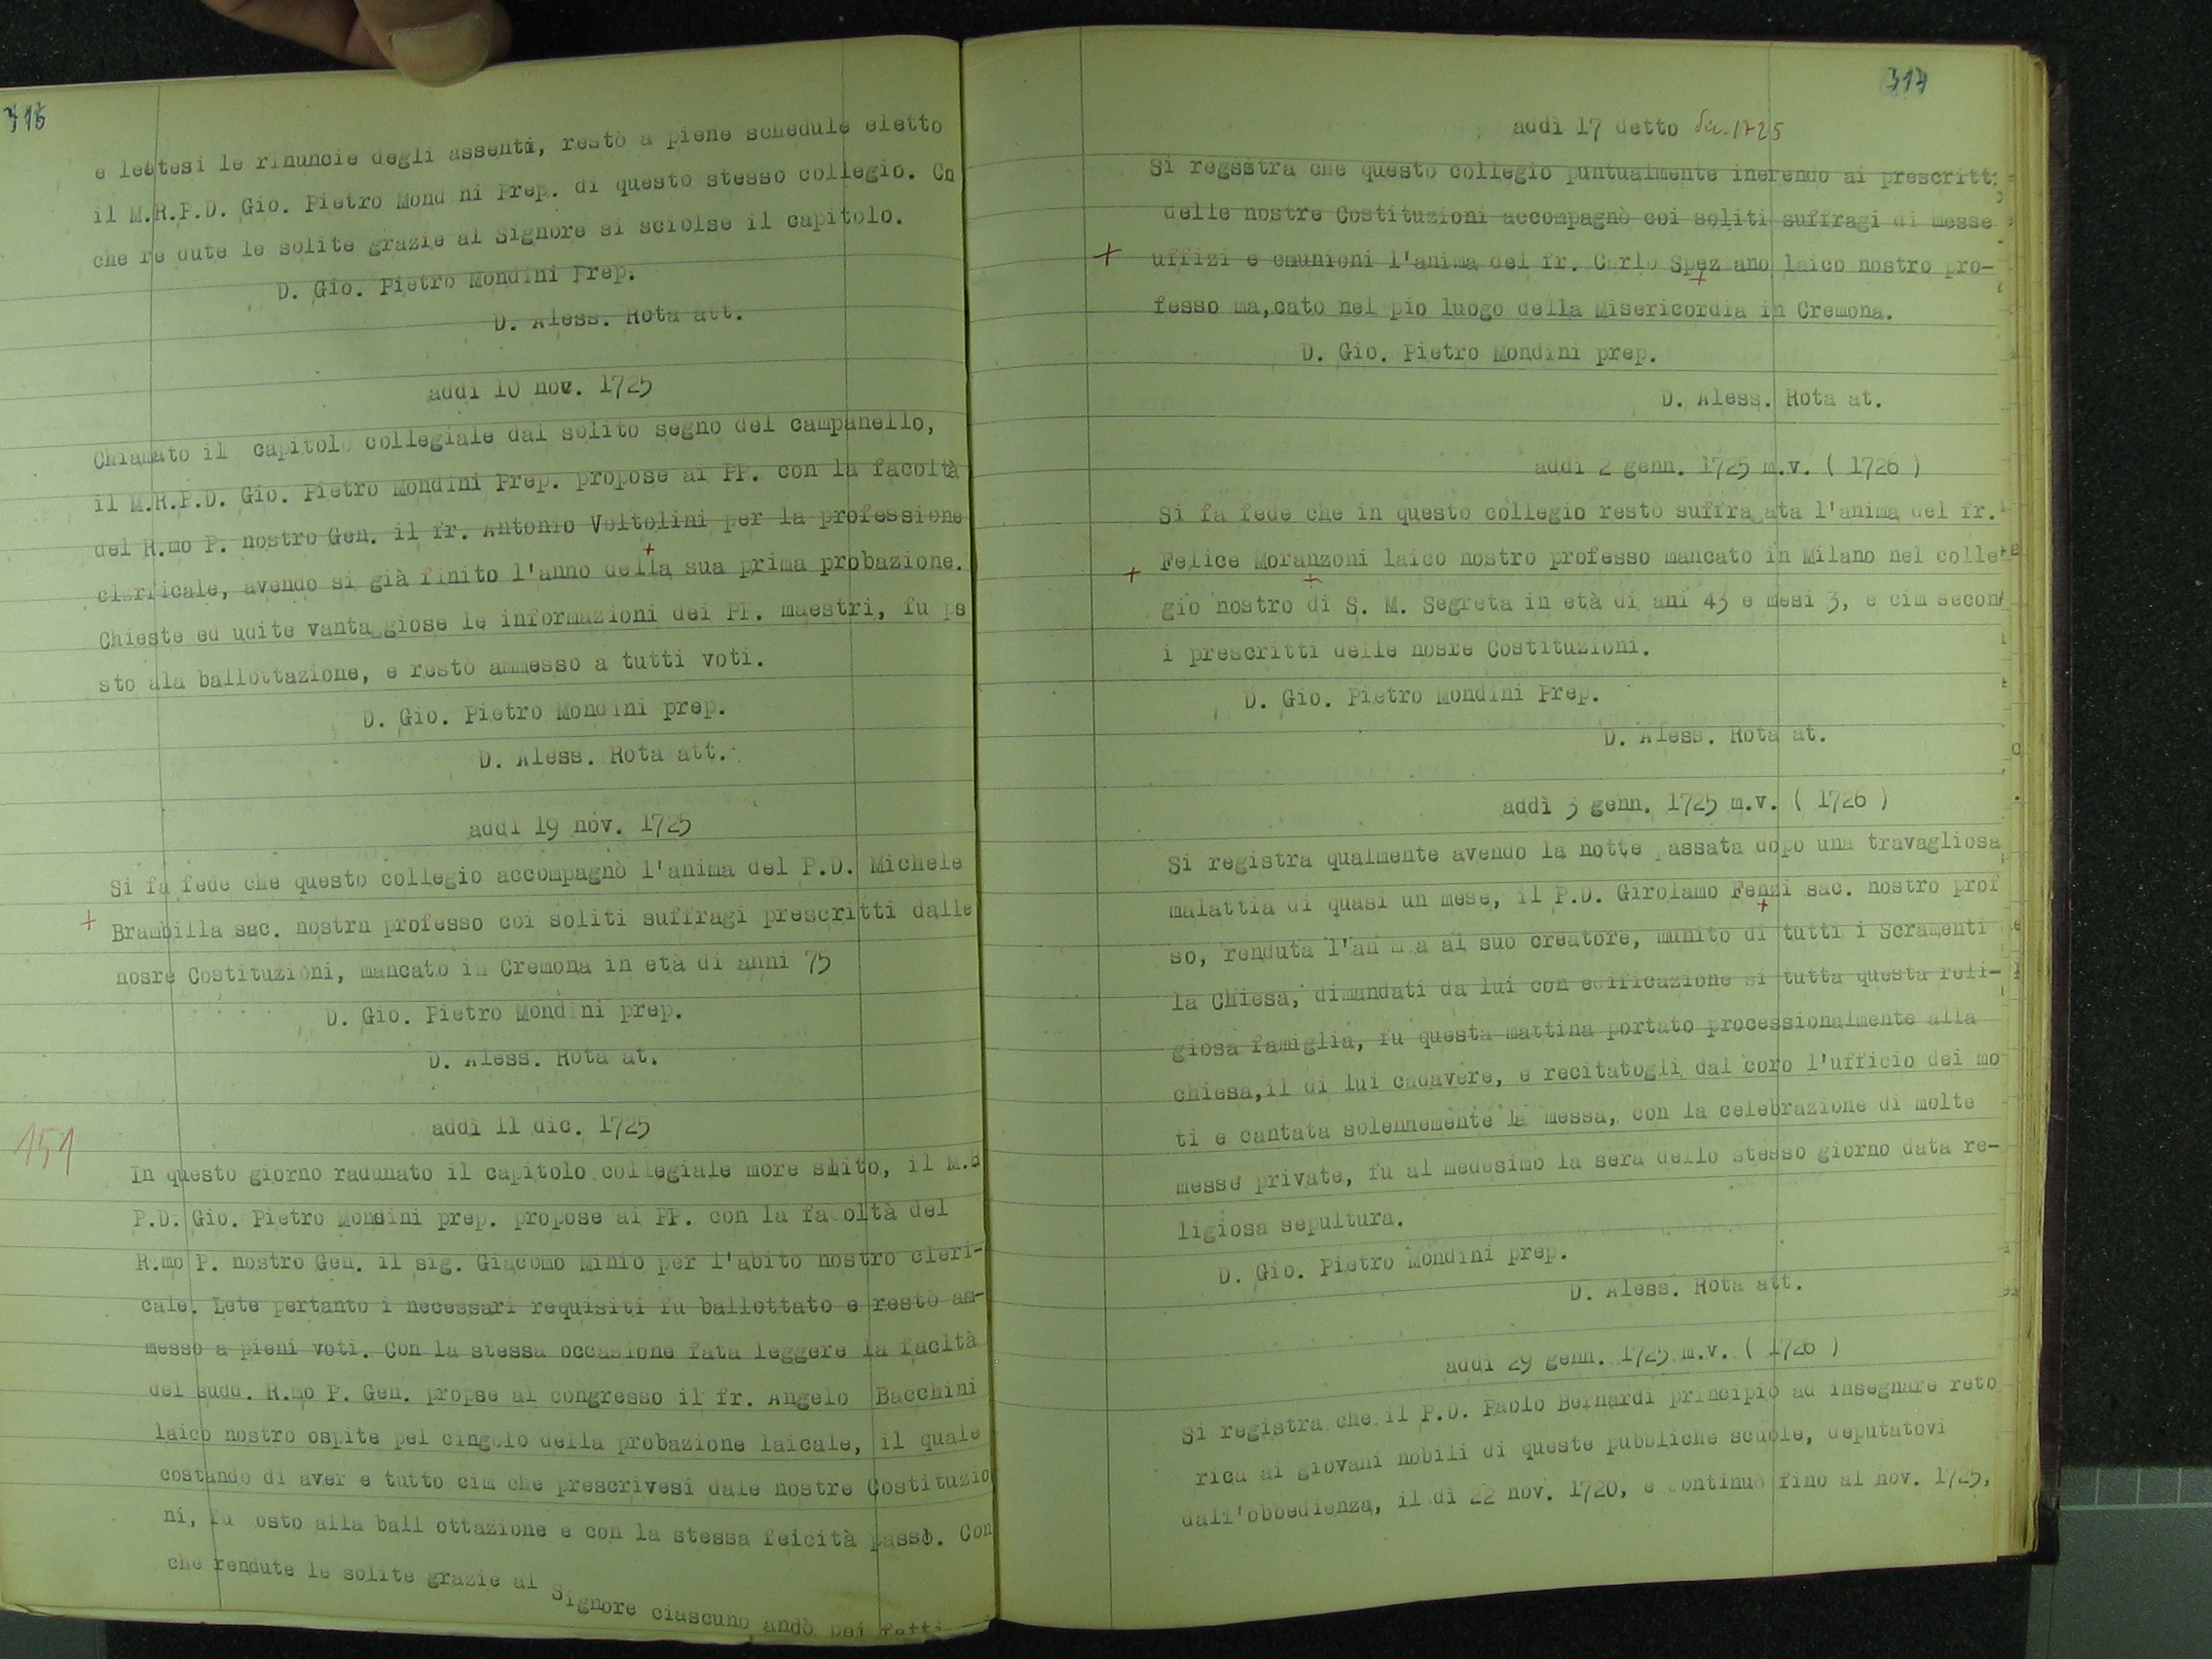 315
e leetesi le rinuncie degli assenti, restò a piene schedule eletto
il M.R.P.D. Gio. Pietro Mond ni Prep. di questo stesso collegio. Cn
che re dute le solite grazie al Signore si sciolse il capitolo.
D. Gio. Pietro Mondini Prep.
D. Aless. Rota att.
addì 10 nov. 1725
Chiamato il capitolo collegiale dal solito segno del campanello,
il M.R.P.D. Gio. Pietro Mondini Prep. propose ai PP. con la facoltà
del R.mo P. nostro Gen. il fr. Antonio Voltolini per la professione
clericale, avendo si già finito l'anno della sua prima probazione.
Chieste ed udite vantaggiose le informazioni dei PP. maestri, fu po
sto ala ballottazione, e restò ammesso a tutti voti.
D. Gio. Pietro Mondini prep.
D. Aless. Rota att.
addì 19 nov. 1725
Si fa fede che questo collegio accompagnò l'anima del P.D. Michele
+ Brambilla sac. nostrn professo coi soliti suffragi prescritti dalle
nosre Costituzioni, mancato in Cremona in età di anni 75
D. Gio. Pietro Mondini prep.
D. Aless. Rota at.
151
addì 11 dic. 1725
In questo giorno radunato il capitolo collegiale more slito, il M.R
P.D. Gio. Pietro Monsini prep. propose ai PP. con la facoltà del
R.mo P. nostro Gen. il sig. Giacomo Minio per l'abito nostro cleri-
cale. Lete pertanto i necessari requisiti fu ballottato e restò am-
messo a pieni voti. Con la stessa occasione fata leggere la facltà
del sudd. R.mo P. Gen. propse al congresso il fr. Angelo Bacchini
laico nostro ospite pel cingolo della probazione laicale, il quale
costando di aver e tutto cim che prescrivesi dale nostre Costituzio
ni, fu osto alla ball ottazione e con la stessa feicità passò. Con
che rendute le solite grazie al Signore ciascuno andò pei fatti
addì 17 detto dic. 1725
Si regsstra che questo collegio puntualmente inerendo ai prescritti
delle nostre Costituzioni accompagnò coi soliti suffragi di messe
+ uffizi e cmunioni l'anima del fr. Carlo Spez ano laico nostro pro-
fesso ma,cato nel pio luogo della Misericordia in Cremona.
D. Gio. Pietro Mondini prep.
D. Aless. Rota at.
addì 2 genn. 1725 m.v. ( 1726 )
Si fa fede che in questo collegio restò suffragata l'anima del fr.
+ Felice Moranzoni laico nostro professo mancato in Milano nel colle
gio nostro di S. M. Segreta in età di ani 43 e mesi 3, e cim secon
i prescritti delle nosre Costituzioni.
D. Gio. Pietro Mondini Prep.
D. Aless. Rota at.
addì 3 genn. 1725 m.v. ( 1726 )
Si registra qualmente avendo la notte passata dopo una travagliosa
malattia di quasi un mese, il P.D. Girolamo Fenzi sac. nostro prof
so, renduta l'an m a al suo creatore, munito di tutti i Scramenti
la Chiesa, dimandati da lui con edificazione si tutta questa reli-
giosa famiglia, fu questa mattina portato processionalmente alla
chiesa,il di lui cadavere, e recitatogli dal coro l'ufficio dei mo
ti e cantata solennemente la messa, con la celebrazione di molte
messe private, fu al medesimo la sera dello stesso giorno data re-
ligiosa sepultura.
D. Gio. Pietro Mondini prep.
D. Aless. Rota att.
addì 29 genn. 1725 m.v. ( 1726 )
Si registra che il P.D. Paolo Bernardi principiò ad insegnare reto
rica ai giovani nobili di queste pubbliche scuole, deputatovi
dall'obbedienza, il dì 22 nov. 1720, e continuò fino al nov. 1725,